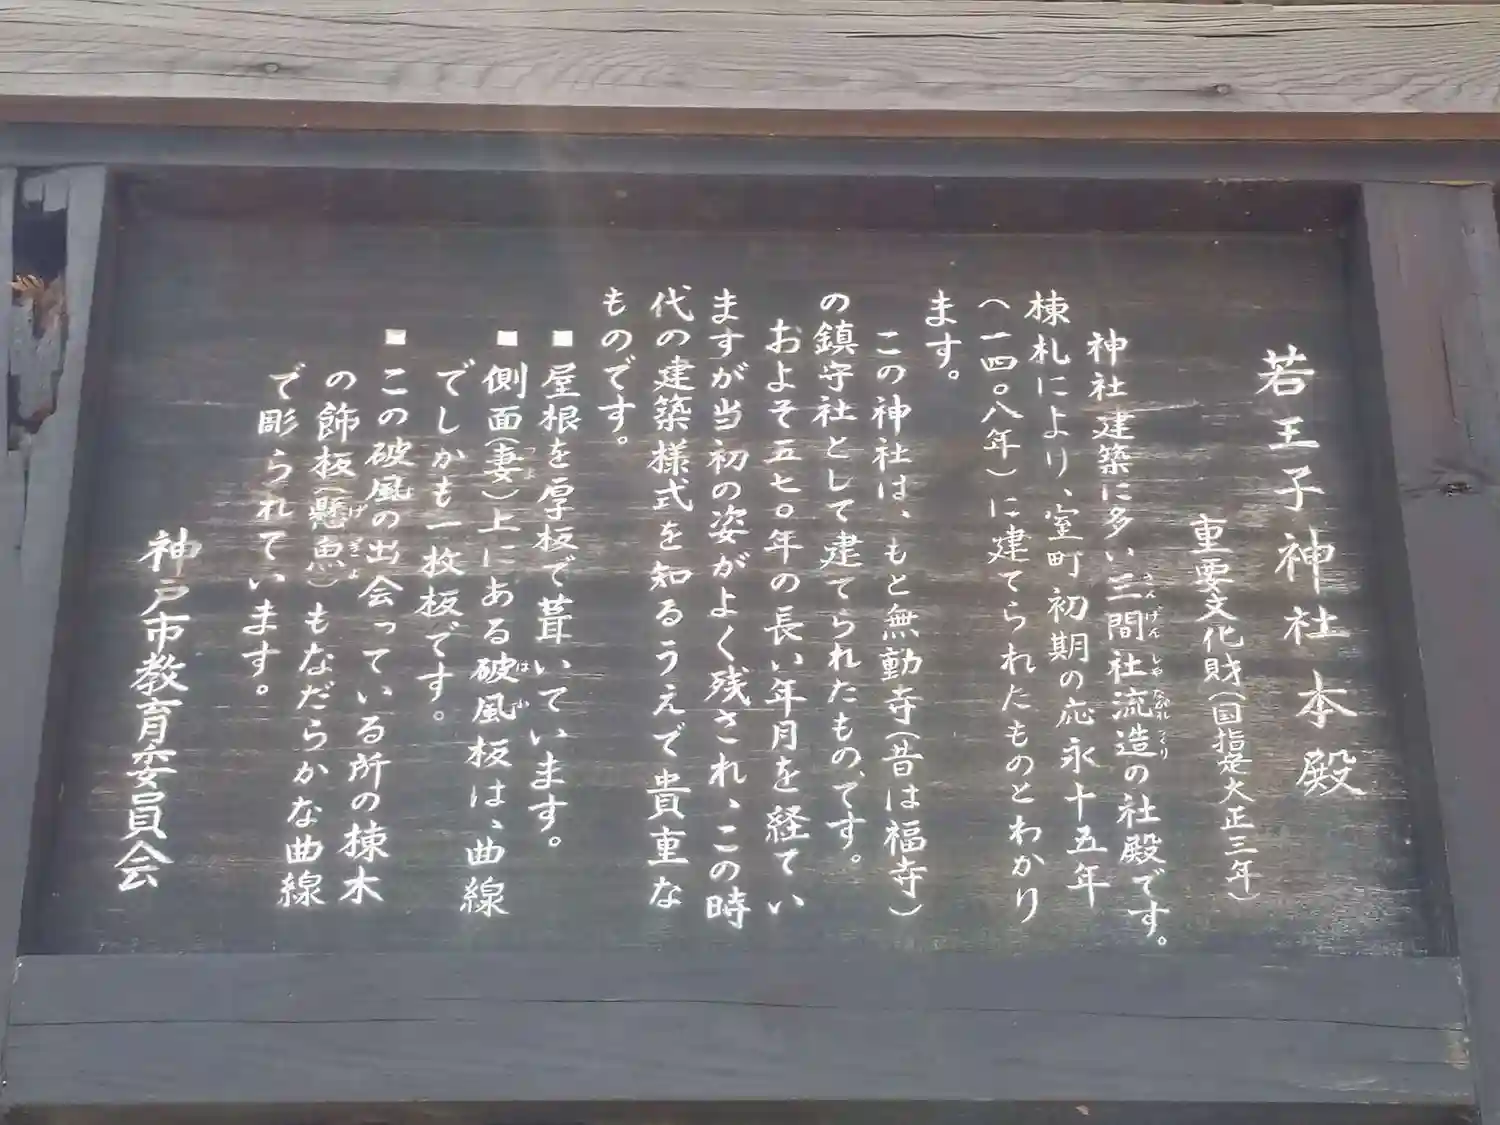 若王子神社本殿
重要文化財(国指定大正三年)
神社建築に多い三間社流造の社殿です。
さんげんしゃながれづくり
棟札により、室町初期の応永十五年
(一四〇八年)に建てられたものとわかり
ます。
この神社は、もと無動寺(昔は福寺)
の鎮守社として建てられたものです。
およそ五七〇年の長い年月を経てい
ますが当初の姿がよく残され、この時
代の建築様式を知るうえで貴重な
ものです。
■屋根を厚板で葺いています。
■側面(妻)上にある破風板は、曲線
はふ
でしかも一枚板です。
■この破風の出会っている所の棟木
の飾板(懸魚)もなだらかな曲線
げぎょ
で彫られています。
神戸市教育委員会